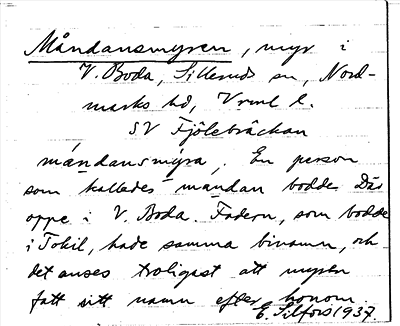 Måndansmyren, myr i
V. Boda, Silleruds sn, Nord-
marks hd, Vrml l.
SV Fjölebäckan
mándansmýra. En person
som kallades måndan bodde där
oppe i V. Boda. Fadern, som bodde
i Tokil, hade samma binamn, och
det anses troligast att myren
fått sitt namn efter honom.
E. Silfors 1937.